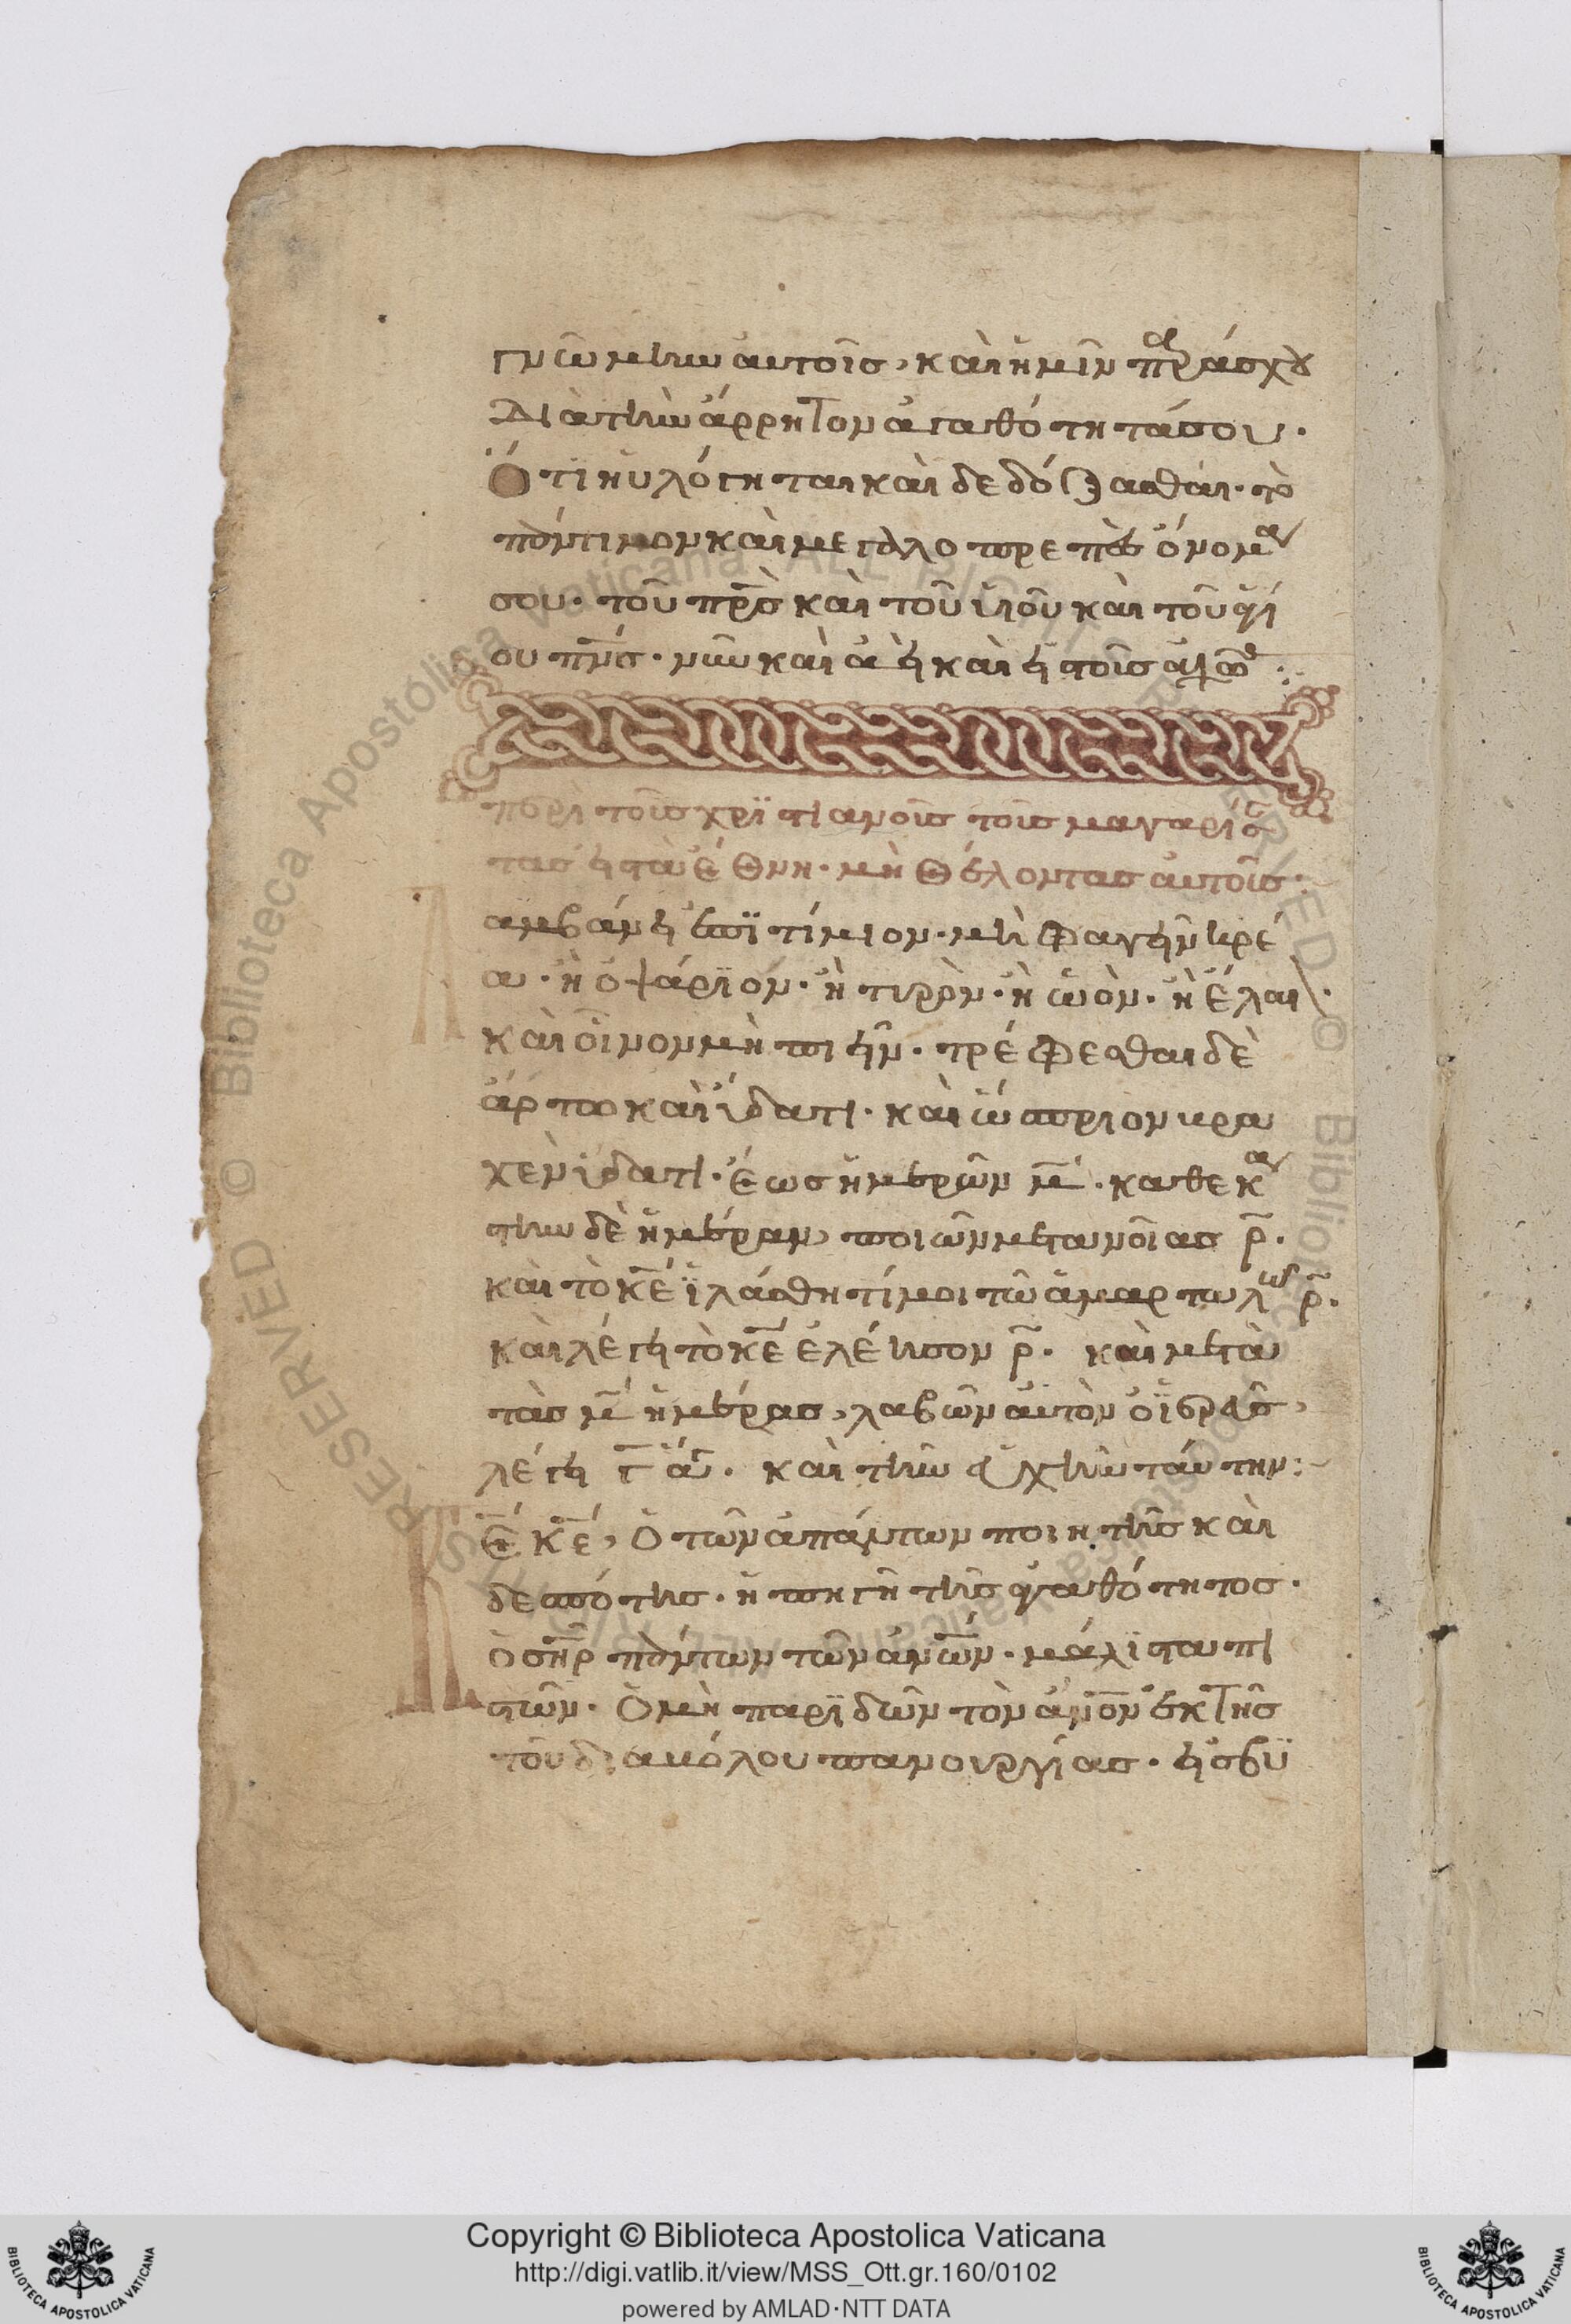 γνώμην αυτοῖς, καὶ ἡμῖν παράσχου
Διὰ τὴν ἄρρητον ἀγαθότητά σου.
Ὅτι ηυλόγηται καὶ δεδόξασθαι· τὸ
πάντιμον καὶ μεγαλοπρεπὲς ὄνομα
σου· τοῦ πρς καὶ τοῦ υἱοῦ καὶ τοῦ ἁγί
ου πνς· νῦν καὶ ἀεὶ καὶ εἰς τοῖς αἰῶ:
περι τοῖς χριστιανοῖς τοῖς μαγαρίσ
τας εἰς τὰ ἔθνη· μὴ θέλοντας αὐτοῖς:
Λαμβάνει ἐπιτίμιον· μὴ φαγεῖν κρέ
α· ἢ ὀψάριον· ἢ τυρὸν· ἢ ὠὸν· ἢ ἔλαι\·
καὶ οἶνον μὴ πιεῖν· τρέφεσθαι δὲ
ἄρτω καὶ ὕδατι· καὶ ὤσπριον βρα
χὲν ὕδατι· ἕως ἡμερῶν μ̅· καθεκα
στην δὲ ἡμέραν, ποιῶν μετανοίας ρ̅·
καὶ τὸ κε̅ ἱλάσθητί μοι τῶ ἁμαρτωλῶ ρ̅·
καὶ λέγει τὸ κε̅ ἐλέησον ρ̅· καὶ μετὰ
τὰς μ̅ ἡμέρας, λαβὼν αὐτὸν ὁ ἱερεὺς,
λέγει τ̅ ἅγ̅· καὶ τὴν εὐχὴν ταύτην:
Κε̅, ὁ τῶν ἁπάντων ποιητὴς καὶ
δεσπότης· ἡ πηγὴ τῆς ἀγαθότητος·
ὁ σηρ̅ πάντων τῶν ανων̅· μάλιστα πι
στῶν· Ὁ μὴ παριδὼν τὸν ανον̅ ἐκ τῆς
τοῦ διαβόλου πανουργίας· εἰς ευ
Biblioteca Apostolica Vaticana ALL RIGHTS RESERVED ©
Copyright © Biblioteca Apostolica Vaticana
http://digi.vatlib.it/view/MSS_Ott.gr.160/0102
powered by AMLAD·NTT DATA
BIBLIOTECA APOSTOLICA VATICANA
BIBLIOTECA APOSTOLICA VATICANA